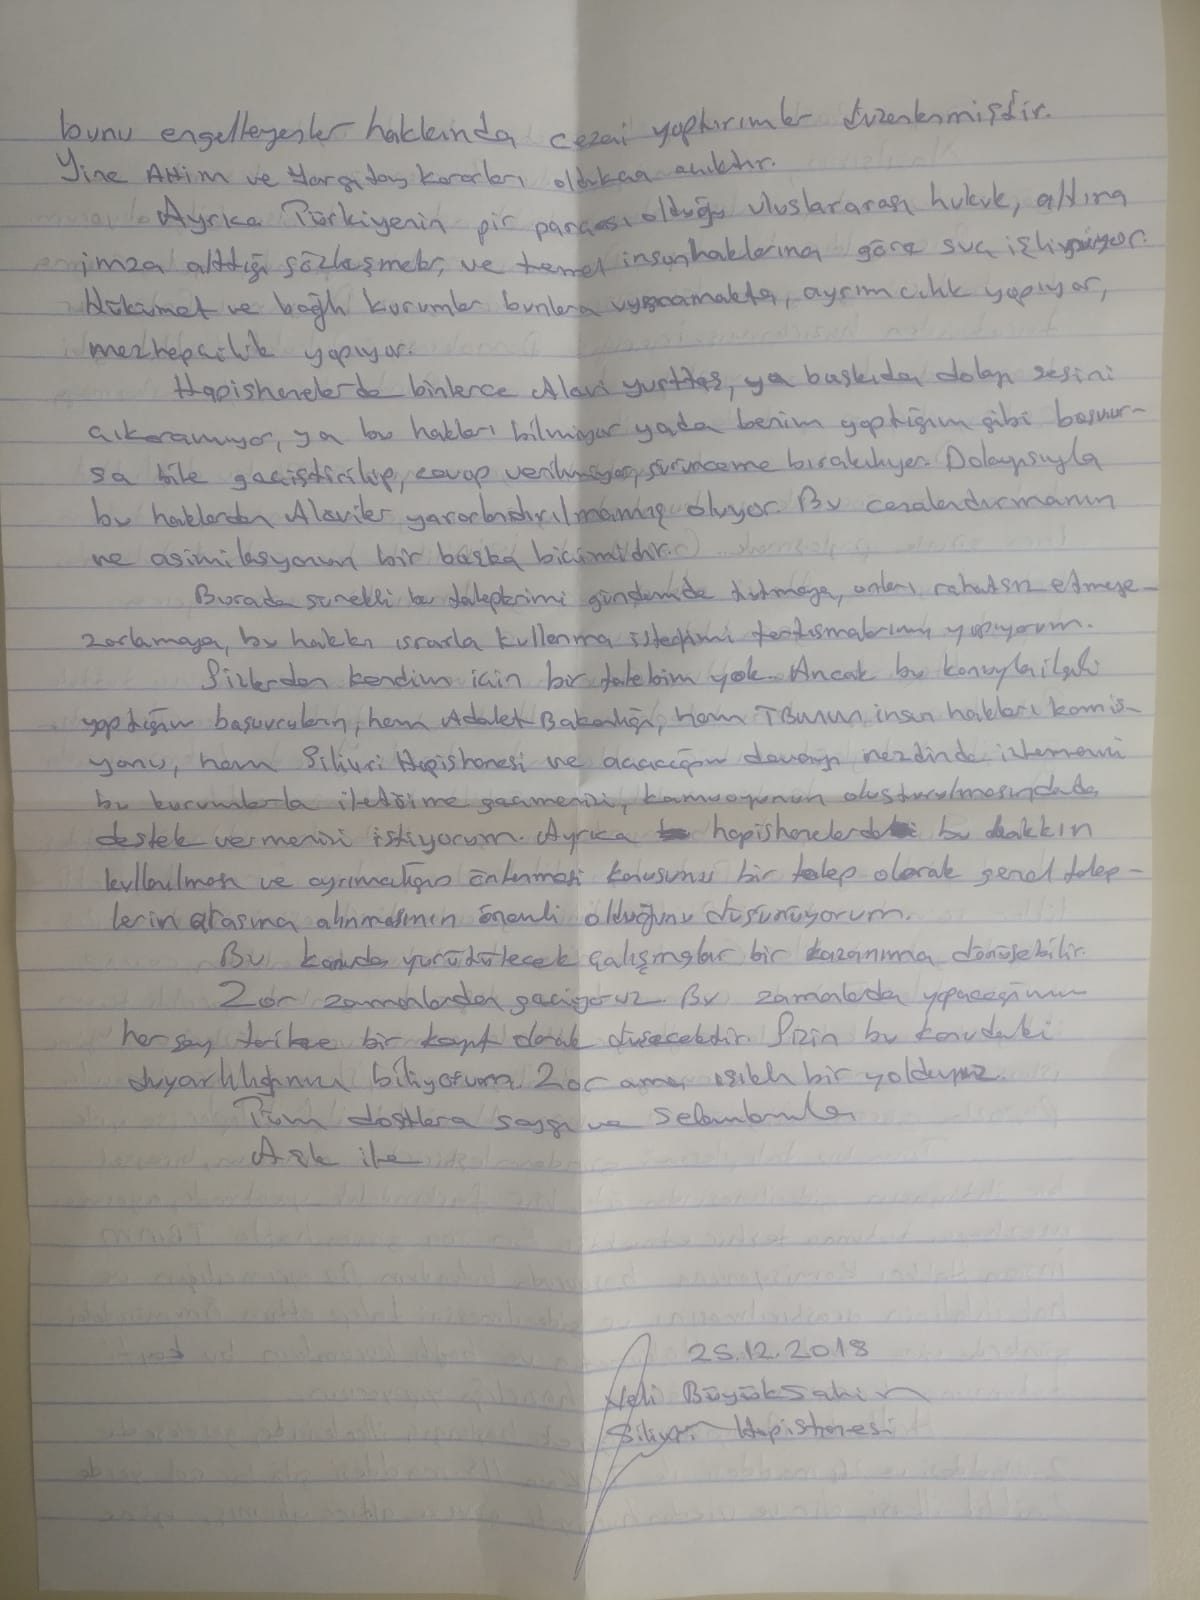 bunu engelleyenler hakkında cezai yaptırımlar düzenlenmişdir.
Yine AHim ve Yargıtay kararları oldukca açıktır.
Ayrıca Türkiyenin bir parçası olduğu uluslararası hukuk, altına
imza attığı sözleşmeler, ve temel insan haklarına göre suç işliyor.
Hükümet ve bağlı kurumlar bunlara uymamakta, ayrımcılık yapıyor,
mezhepçilik yapıyor.
Hapishanelerde binlerce Alavi yurttaş, ya baskıdan dolayı sesini
çıkaramıyor, ya bu hakları bilmiyor yada benim yaptığım gibi başvur-
sa bile geçiştirilip, cevap verilmiyor, sürünceme bırakılıyor. Dolayısıyla
bu haklardan Alaviler yararlandırılmamış oluyor. Bu cezalandırmanın
ve asimilasyonun bir başka biçimidir.
Burada sürekli bu taleplerimi gündemde tutmaya, onları rahatsız etmeye
zorlamaya, bu hakkı ısrarla kullanma isteğimi tartışmalarını yapıyorum.
Sizlerden kendim için bir talebim yok. Ancak bu konuyla ilgili
yaptığım başvuruların, hem Adalet Bakanlığı, hem TBMM'nin insan hakları komis-
yonu, hem Silivri Hapishanesi ve açacağım davanın nezdinde izlemenizi
bu kurumlarla iletişime geçmenizi, kamuoyunun oluşturulmasındada
destek vermenizi istiyorum. Ayrıca hapishanelerdeki bu hakkın
kullanılması ve ayrımcılığın önlenmesi konusunu bir talep olarak genel talep-
lerin arasına alınmasının önemli olduğunu düşünüyorum.
Bu konuda yürütülecek çalışmalar bir kazanıma dönüşebilir.
Zor zamanlardan geçiyoruz. Bu zamanlarda yapacağımız
her şey tarihe bir kayıt olarak düşecektir. Sizin bu konudaki
duyarlılığınızı biliyorum. Zor ama ışıklı bir yoldayız.
Tüm dostlara saygı ve selamlarımla
Aşk ile
25.12.2018
Veli Büyükşahin
Silivri Hapishanesi